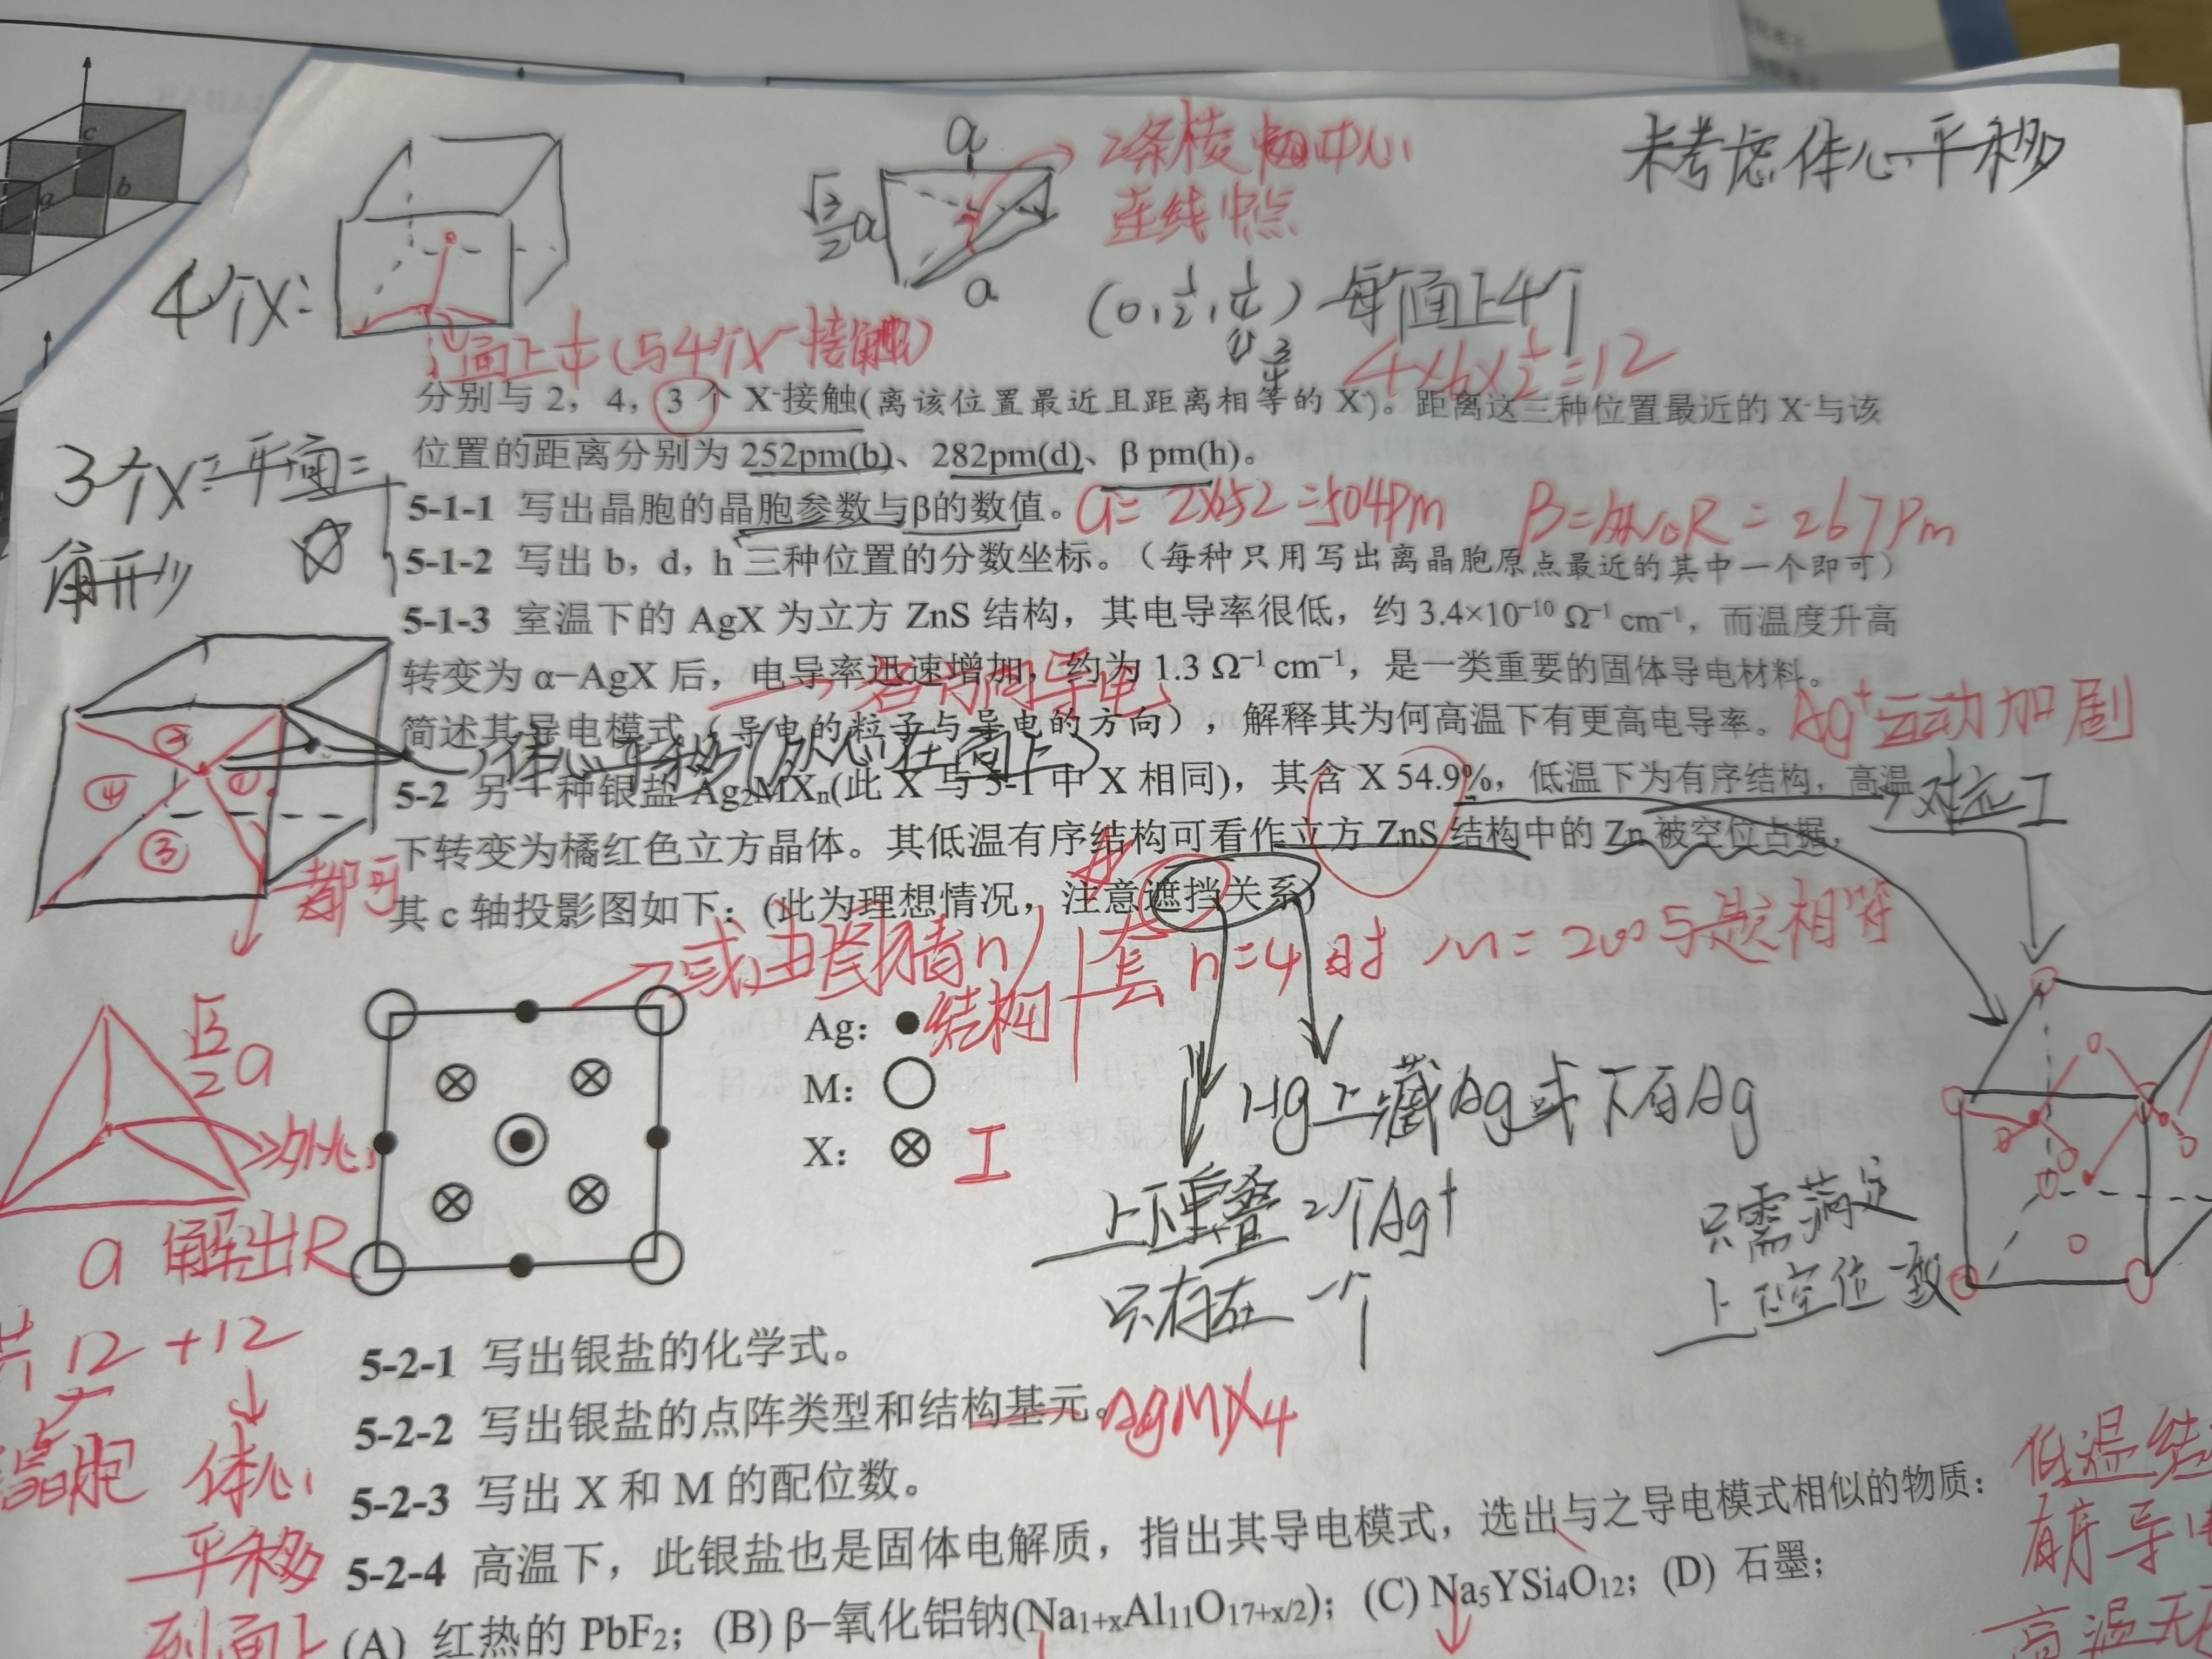 未考虑体心平移
a
2条棱中心
连线中点
c
b
a
√3/2 a
a
4个X:
(0, 1/2, 1/4) 每个面上4个
3/4
4×6×1/2=12
面上中(与4个X⁻接触)
分别与 2，4，3 个 X⁻接触(离该位置最近且距离相等的 X⁻)。距离这三种位置最近的 X⁻与该
位置的距离分别为 252pm(b)、282pm(d)、β pm(h)。
3个X:平面三
角形
5-1-1 写出晶胞的晶胞参数与β的数值。
a= 2×252=504pm
R = 267pm
5-1-2 写出 b，d，h 三种位置的分数坐标。（每种只用写出离晶胞原点最近的其中一个即可）
5-1-3 室温下的 AgX 为立方 ZnS 结构，其电导率很低，约 3.4×10⁻¹⁰ Ω⁻¹ cm⁻¹，而温度升高
转变为 α−AgX 后，电导率迅速增加，约为 1.3 Ω⁻¹ cm⁻¹，是一类重要的固体导电材料。
各方向导电
简述其导电模式（导电的粒子与导电的方向），解释其为何高温下有更高电导率。
Ag⁺运动加剧
体心平移(从心在面上)
② ④ ① ③
5-2 另一种银盐 Ag₂MXₙ(此 X 与 5-1 中 X 相同)，其含 X 54.9%，低温下为有序结构，高温
对应I
下转变为橘红色立方晶体。其低温有序结构可看作立方 ZnS 结构中的 Zn 被空位占据，
都可
其 c 轴投影图如下：(此为理想情况，注意遮挡关系)
或由图猜n
结构
套 n=4 时 M=200与题相符
Ag：
M：
X：
I
Hg上藏Ag或下有Ag
上下重叠2个Ag⁺
只存在一个
只需满足
上下空位一致
√3/2 a
外心
a 解出R
共 12 +12
晶胞 体心
平移
到面上
5-2-1 写出银盐的化学式。
5-2-2 写出银盐的点阵类型和结构基元。
AgMX₄
5-2-3 写出 X 和 M 的配位数。
5-2-4 高温下，此银盐也是固体电解质，指出其导电模式，选出与之导电模式相似的物质：
(A) 红热的 PbF₂；(B) β−氧化铝钠(Na₁₊ₓAl₁₁O₁₇₊ₓ/₂)；(C) Na₅YSi₄O₁₂；(D) 石墨；
低温结
有序导电
高温无